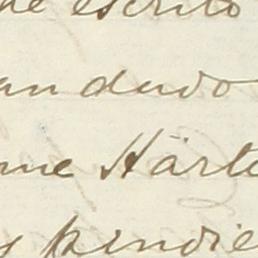 he escrito
an dudo
me Härte
y pindie